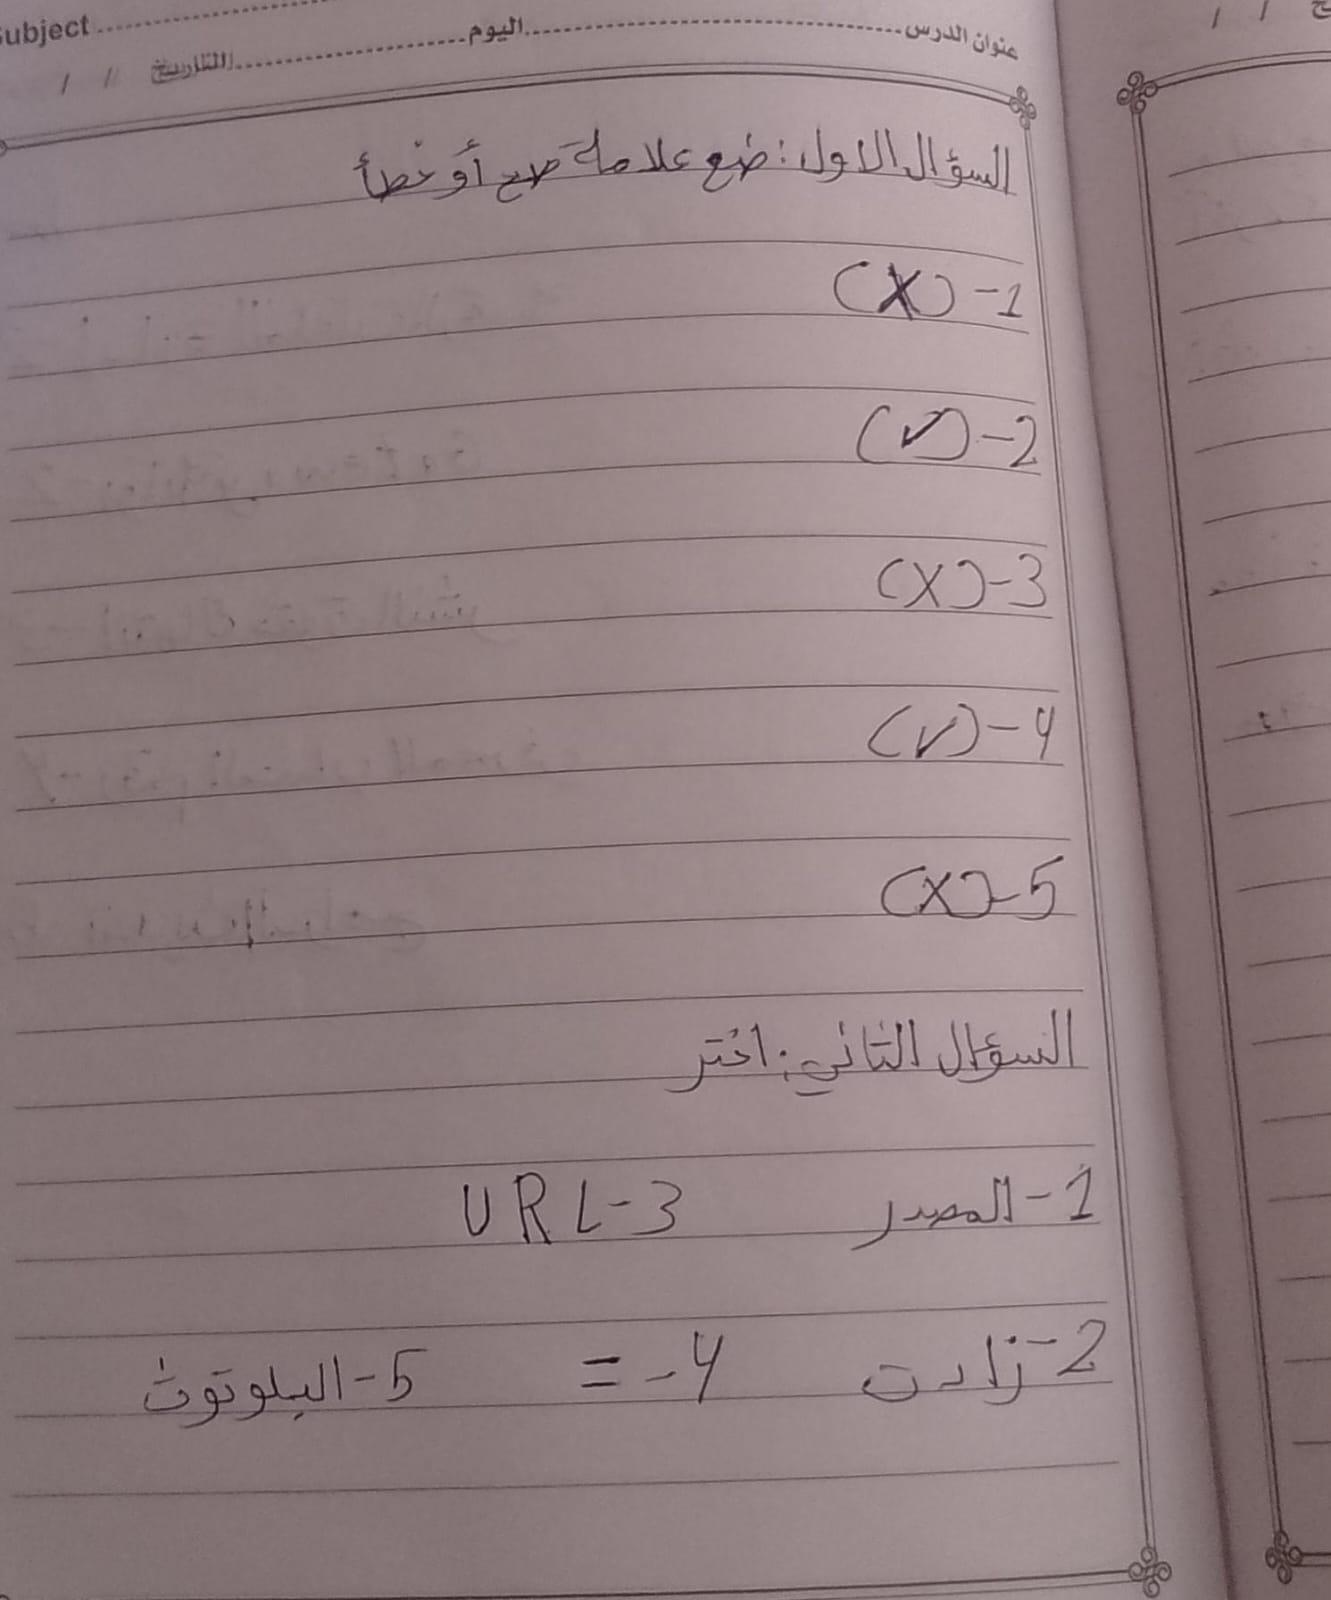 عنوان الدرس ............ اليوم ............ Subject
التاريخ / /
السؤال الاول: ضع علامة صح أو خطأ
1- (X)
2- (✓)
3- (X)
4- (✓)
5- (X)
السؤال الثاني: اختر
1- المصدر 3- URL
2- زادت 4- = 5- البلوتوث